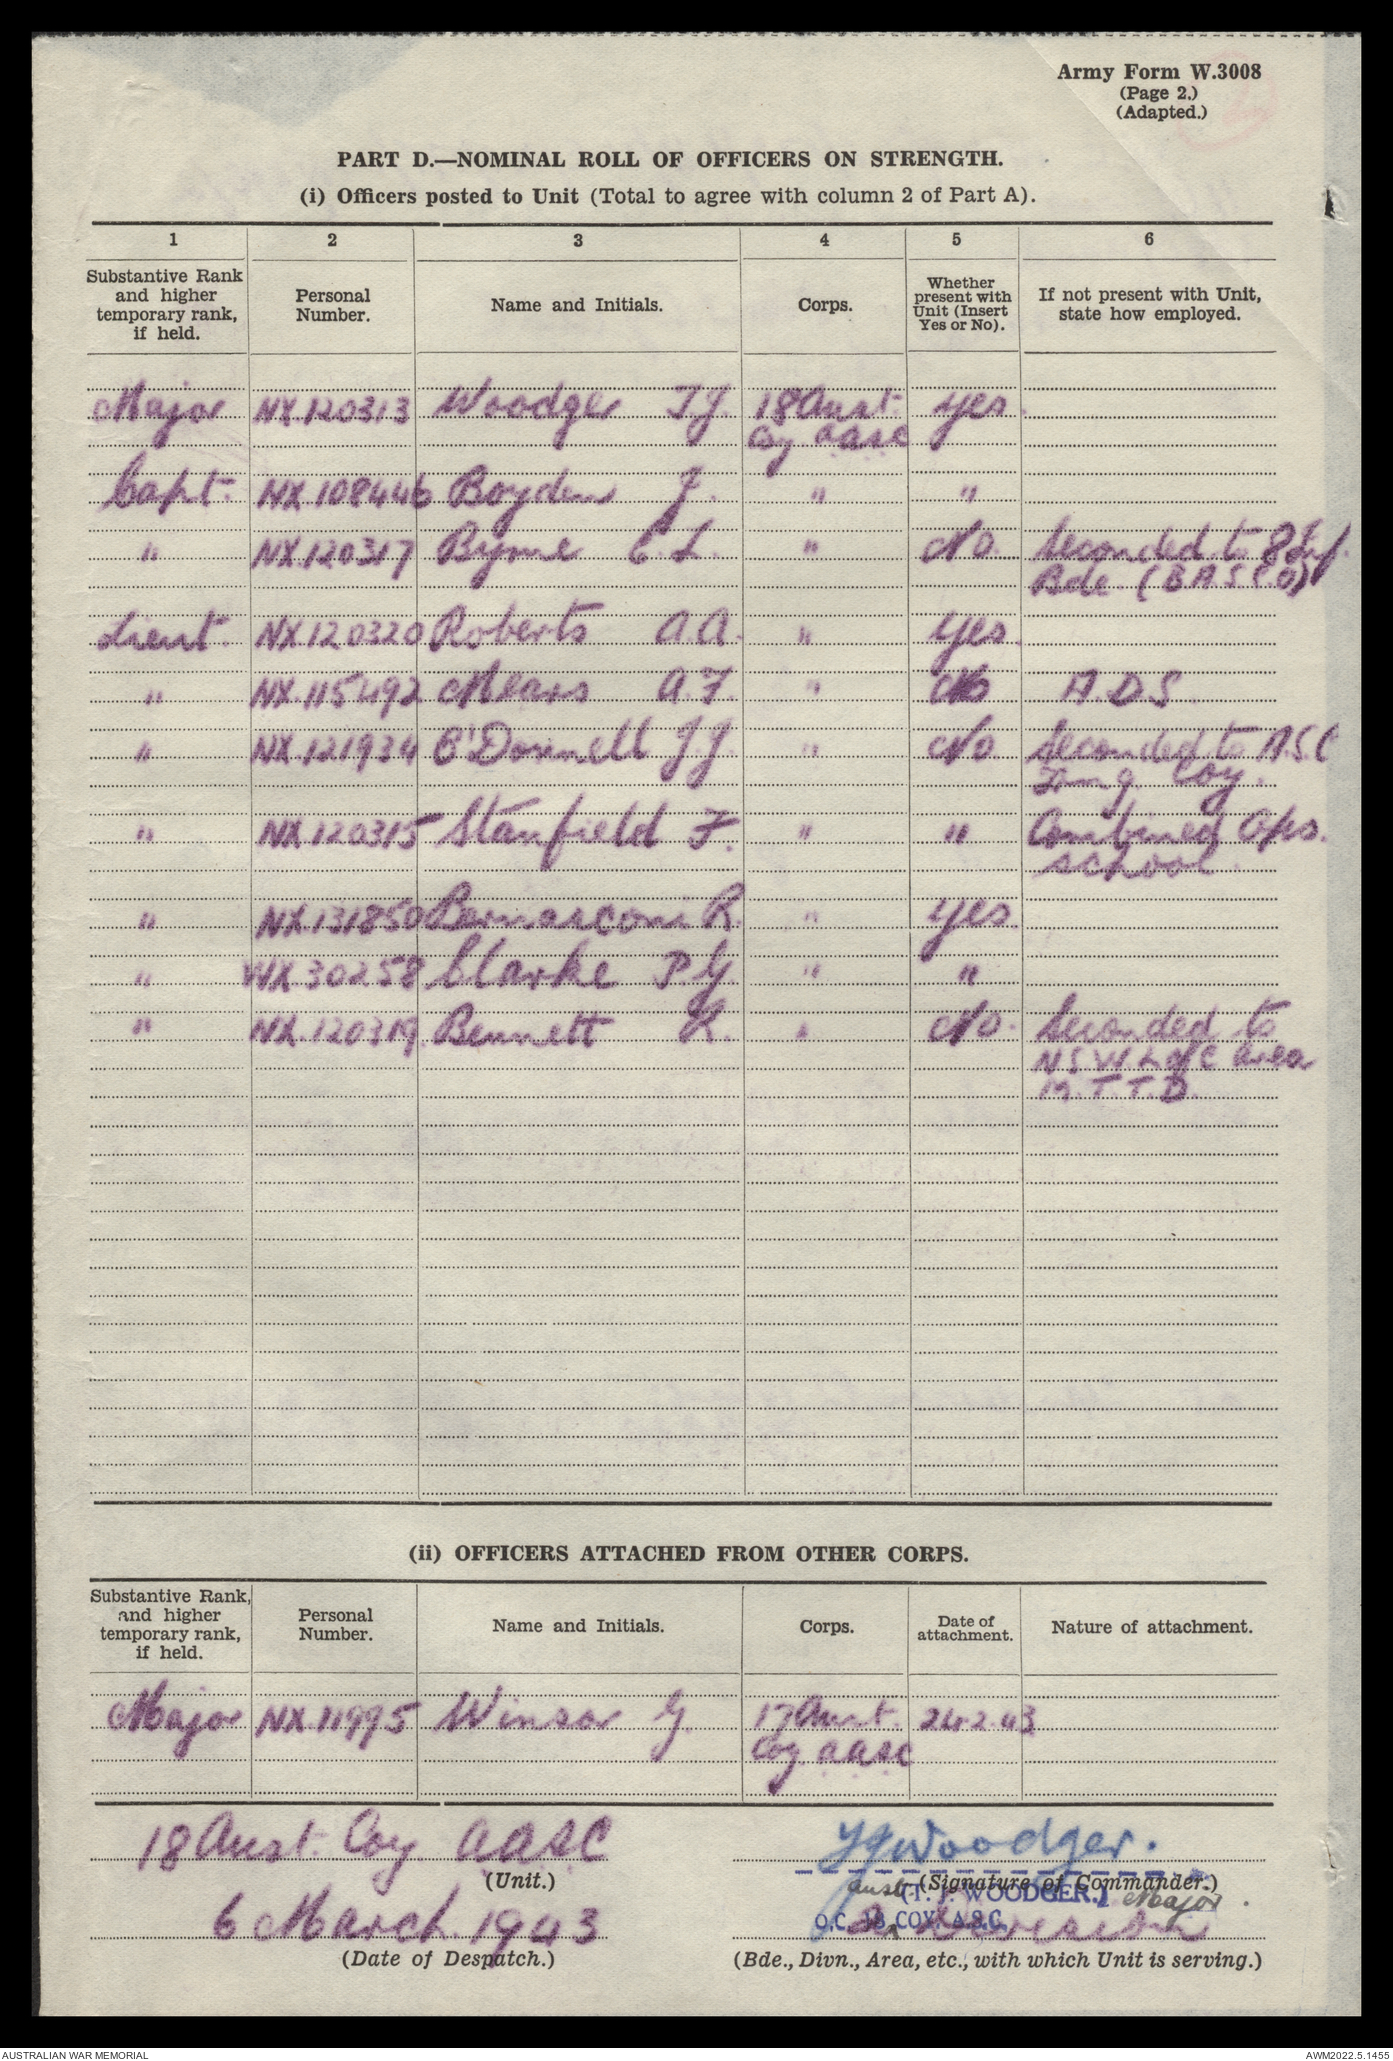 Army Form W.3008
(Page 2.)
(Adapted.)
PART D.—NOMINAL ROLL OF OFFICERS ON STRENGTH.
(i) Officers posted to Unit (Total to agree with column 2 of Part A).
1 2 3 4 5 6
Substantive Rank and higher temporary rank, if held. Personal Number. Name and Initials. Corps. Whether present with Unit (Insert Yes or No). If not present with Unit, state how employed.
Major NX.120313 Woodger T.J. 18 Aust. yes
Coy AASC
Capt. NX.108446 Boyden J. " "
" NX.120317 Byrne C.L. " No. Seconded to 8 Inf.
Bde. (BASCO)
Lieut. NX.120320 Roberts A.A. " yes
" NX.115492 Mears A.F. " No A.D.S.
" NX.121934 O'Donnell J.J. " No. Seconded to A.S.C
Trng. Coy.
" NX.120315 Stanfield F. " " Combined Ops.
school.
" NX.131850 Bernasconi R. " yes.
" WX.30258 Clarke P.G. " "
" NX.120319 Bennett R. " No. Seconded to
N.S.W. L of C area
M.T.T.D.
(ii) OFFICERS ATTACHED FROM OTHER CORPS.
Substantive Rank, and higher temporary rank, if held. Personal Number. Name and Initials. Corps. Date of attachment. Nature of attachment.
Major NX.11995 Winsor G. 17 Aust. 24.2.43
Coy. AASC
18 Aust. Coy AASC
(Unit.)
6 March. 1943
(Date of Despatch.)
TJWoodger.
(Signature of Commander.)
(T. J. WOODGER.) Major.
Aust
O.C. 18 COY. A.S.C.
Division
(Bde., Divn., Area, etc., with which Unit is serving.)
AUSTRALIAN WAR MEMORIAL
AWM2022.5.1455